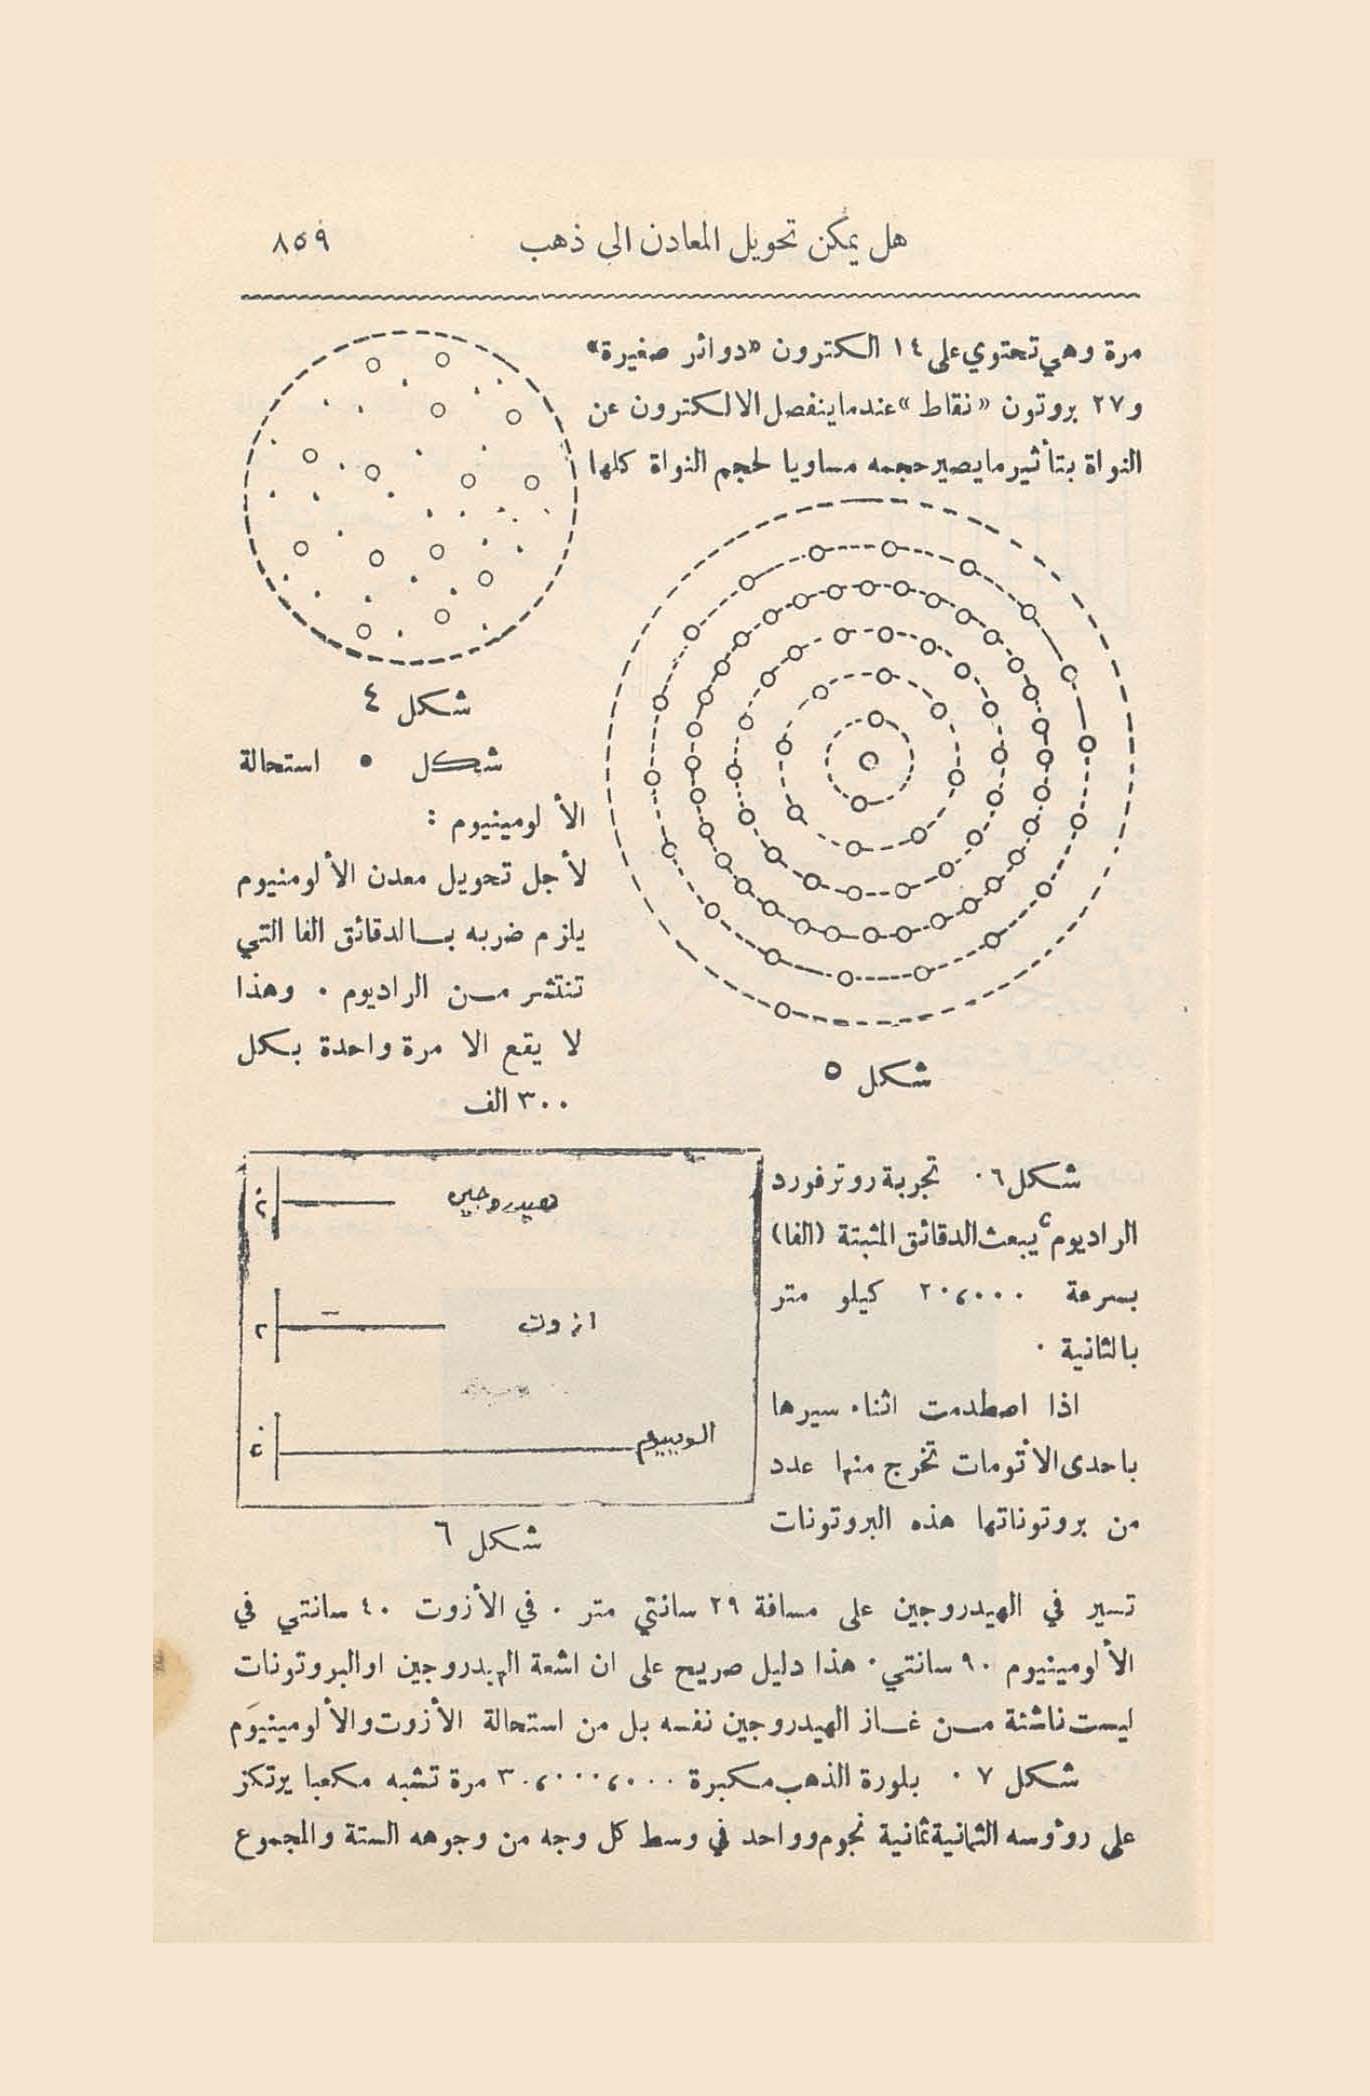 هل يمكن تحويل المعادن الى ذهب ٨٥٩
مرة وهي تحتوي على ١٤ الكترون «دوائر صغيرة»
و٢٧ بروتون «نقاط» عندما ينفصل الالكترون عن
النواة بتأثير ما يصير حجمه مساويا لحجم النواة كلها
شكل ٤
شكل ٥ استحالة
الألومينيوم :
لأجل تحويل معدن الألومنيوم
يلزم ضربه بالدقائق الفا التي
تنتثر من الراديوم . وهذا
لا يقع الا مرة واحدة بكل
٣٠٠ الف
شكل ٥
شكل ٦ . تجربة روترفورد
الراديوم يبعث الدقائق المثبتة (الفا)
بسرعة ٢٠،٠٠٠ كيلو متر
بالثانية .
اذا اصطدمت اثناء سيرها
باحدى الأتومات تخرج منها عدد
من بروتوناتها هذه البروتونات
هيدروجين
ازوت
شكل ٦
تسير في الهيدروجين على مسافة ٢٩ سانتي متر . في الأزوت ٤٠ سانتي في
الألومينيوم ٩٠ سانتي . هذا دليل صريح على ان اشعة الهيدروجين او البروتونات
ليست ناشئة من غاز الهيدروجين نفسه بل من استحالة الأزوت والألومينيوم
شكل ٧ . بلورة الذهب مكبرة ٣٠،٠٠٠،٠٠٠ مرة تشبه مكعبا يرتكز
على رؤوسه الثمانية ثمانية نجوم وواحد في وسط كل وجه من وجوهه الستة والمجموع